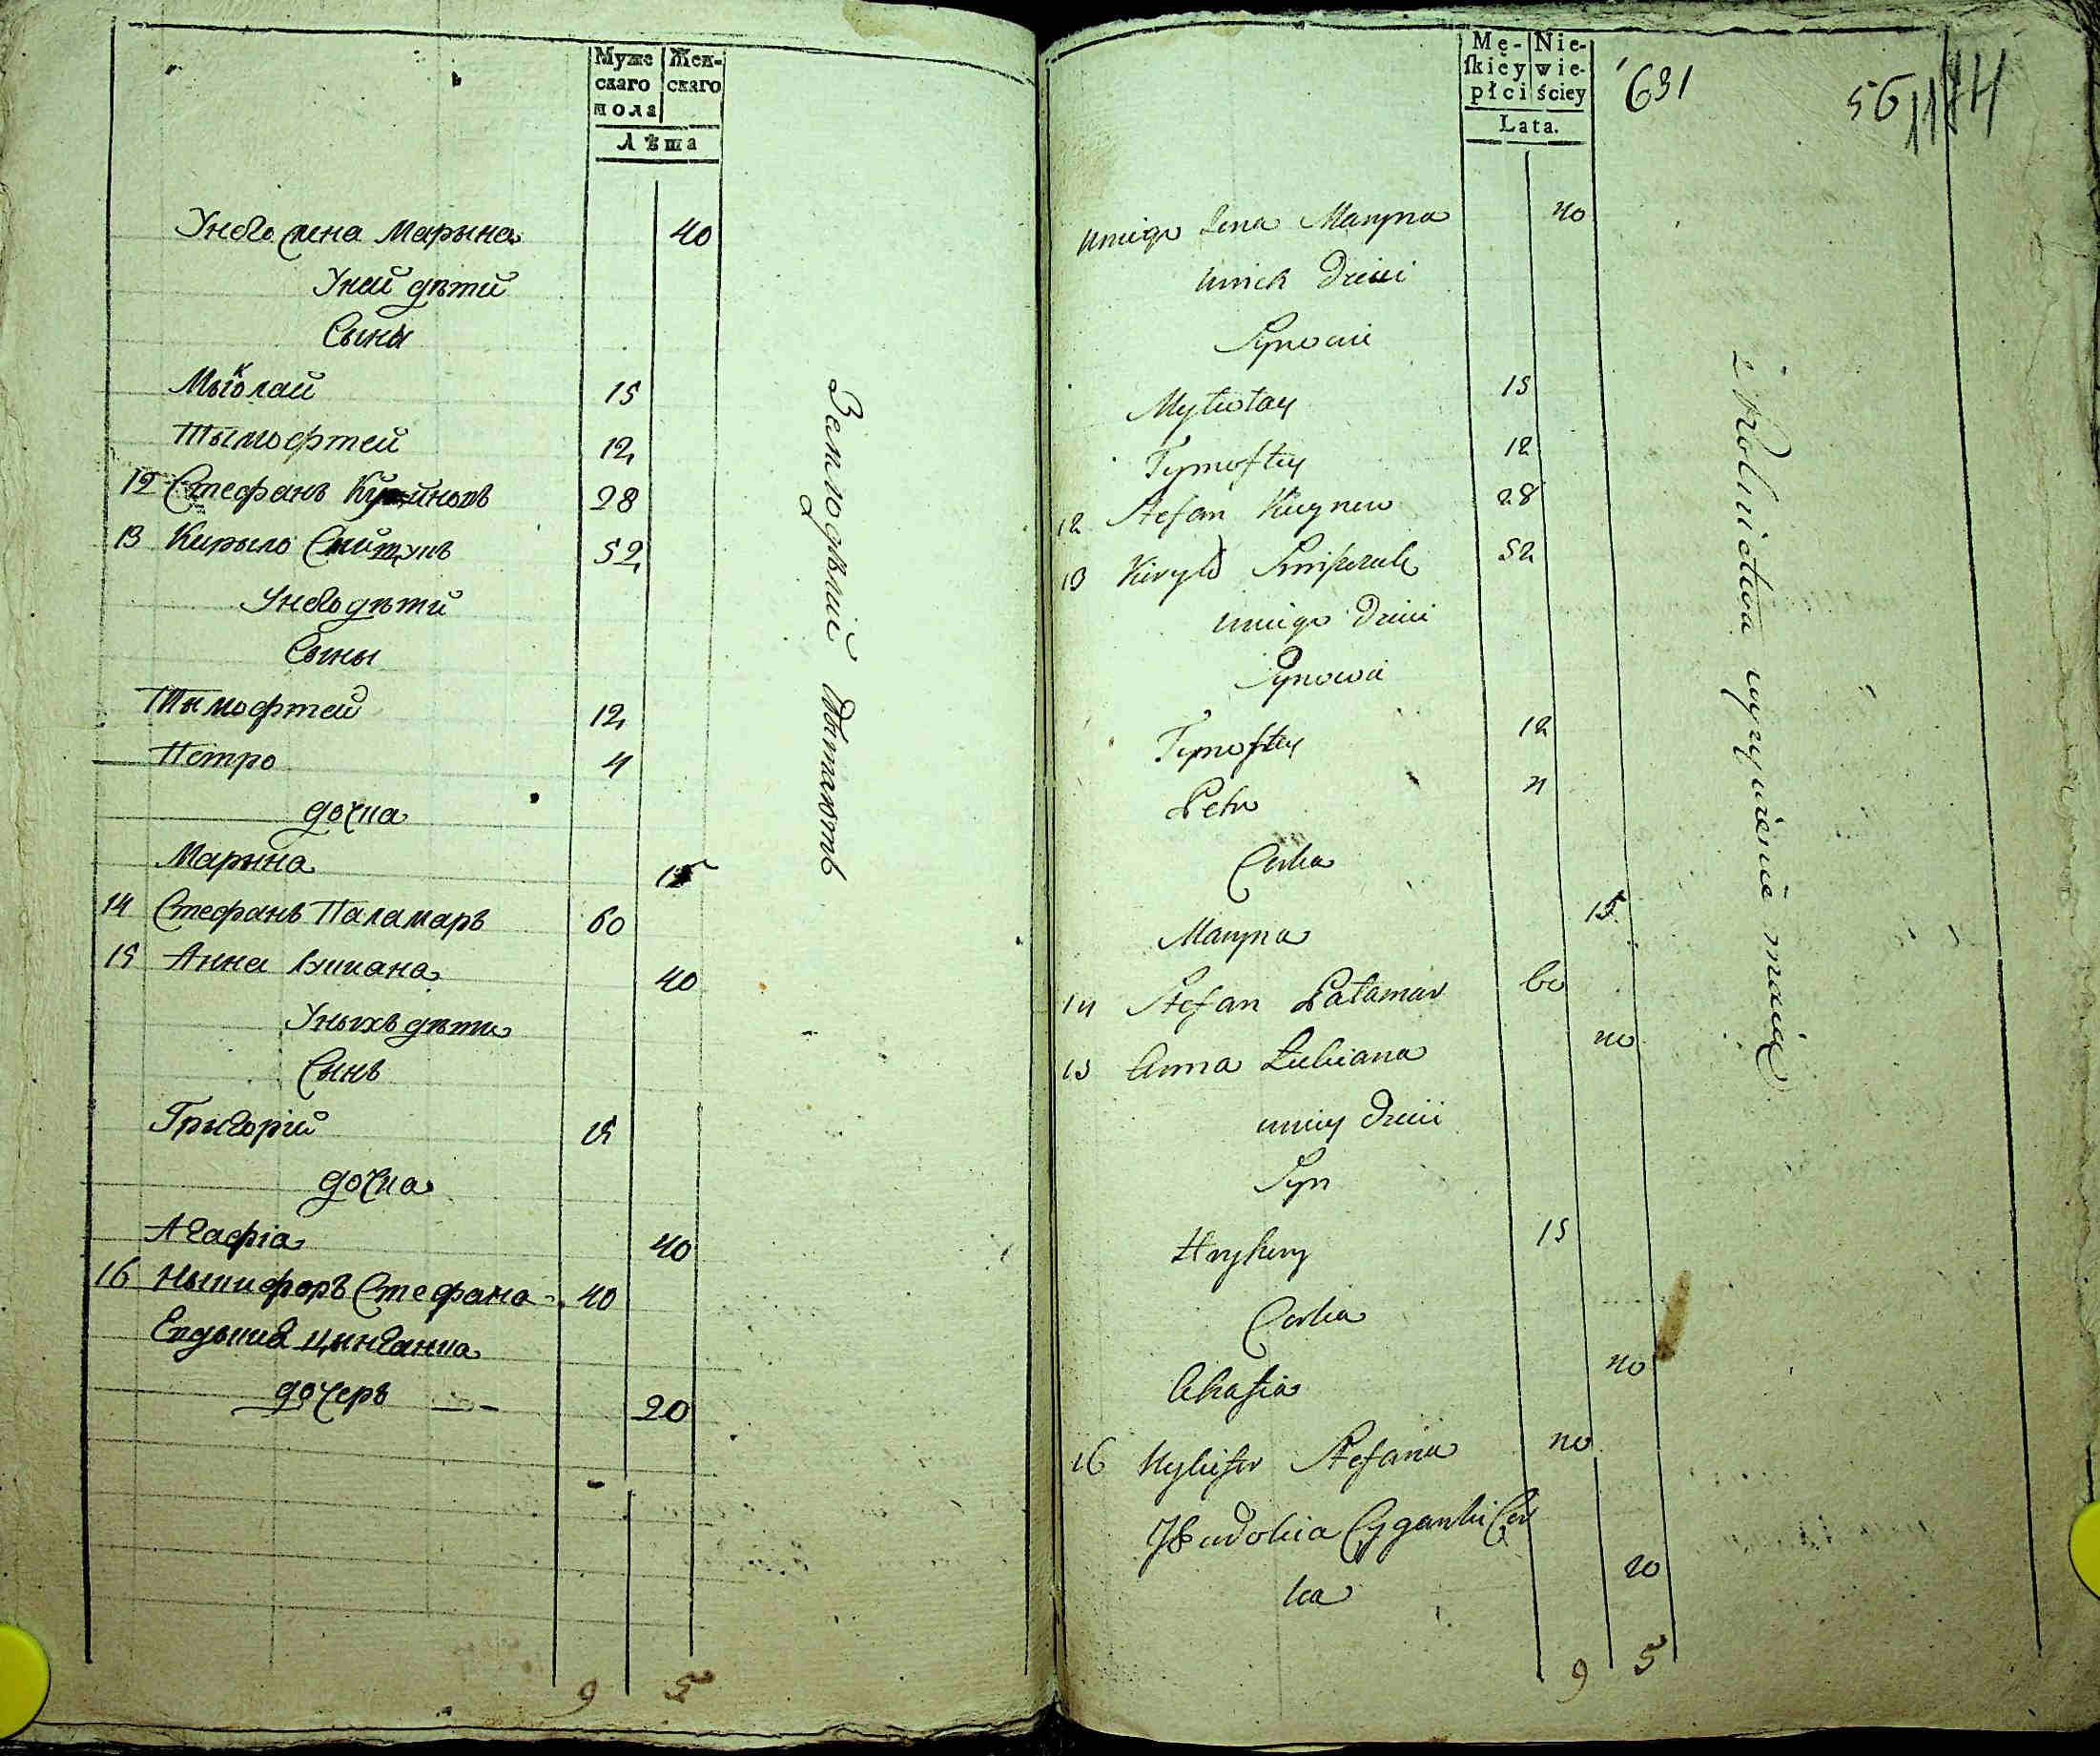 Муже
скаго
пола
Жен-
скаго
Лѣта
У него жена Марына 40
У них дѣти
Сыны
Мыколай 15
Тымофтей 12
12 Стефанъ 28
13 Кирыло 52
У него дѣти
Сыны
Тымофтей 12
Петро 4
дочка
Марына 15
14 Стефанъ Паламаръ 60
15 Анна 40
У ныхъ дѣти
Сынъ
Грыгорій 15
дочка
Агафіа 40
16 Ныкифоръ Стефана 40
Евдокия Цынганка
дочеръ 20
9 5
Земледѣлий
Mę-
skiey
płci
Nie-
wie-
ściey
Lata.
631
56
uniego żena Maryna 40
unich Dzieci
Synowie
Mykołay 15
Tymoftey 12
12 Stefan 28
13 Kiryło 52
uniego Dzieci
Synowie
Tymoftey 12
Petro 4
Corka
Maryna 15
14 Stefan Pałamar 60
15 Anna 40
uniey Dzieci
Syn
Hryhory 15
Corka
Ahafia 40
16 Nykifor Stefana 40
Jewdokia Cyganki Cor
ka 20
9 5
z Rolnictwa wyżywienie maią